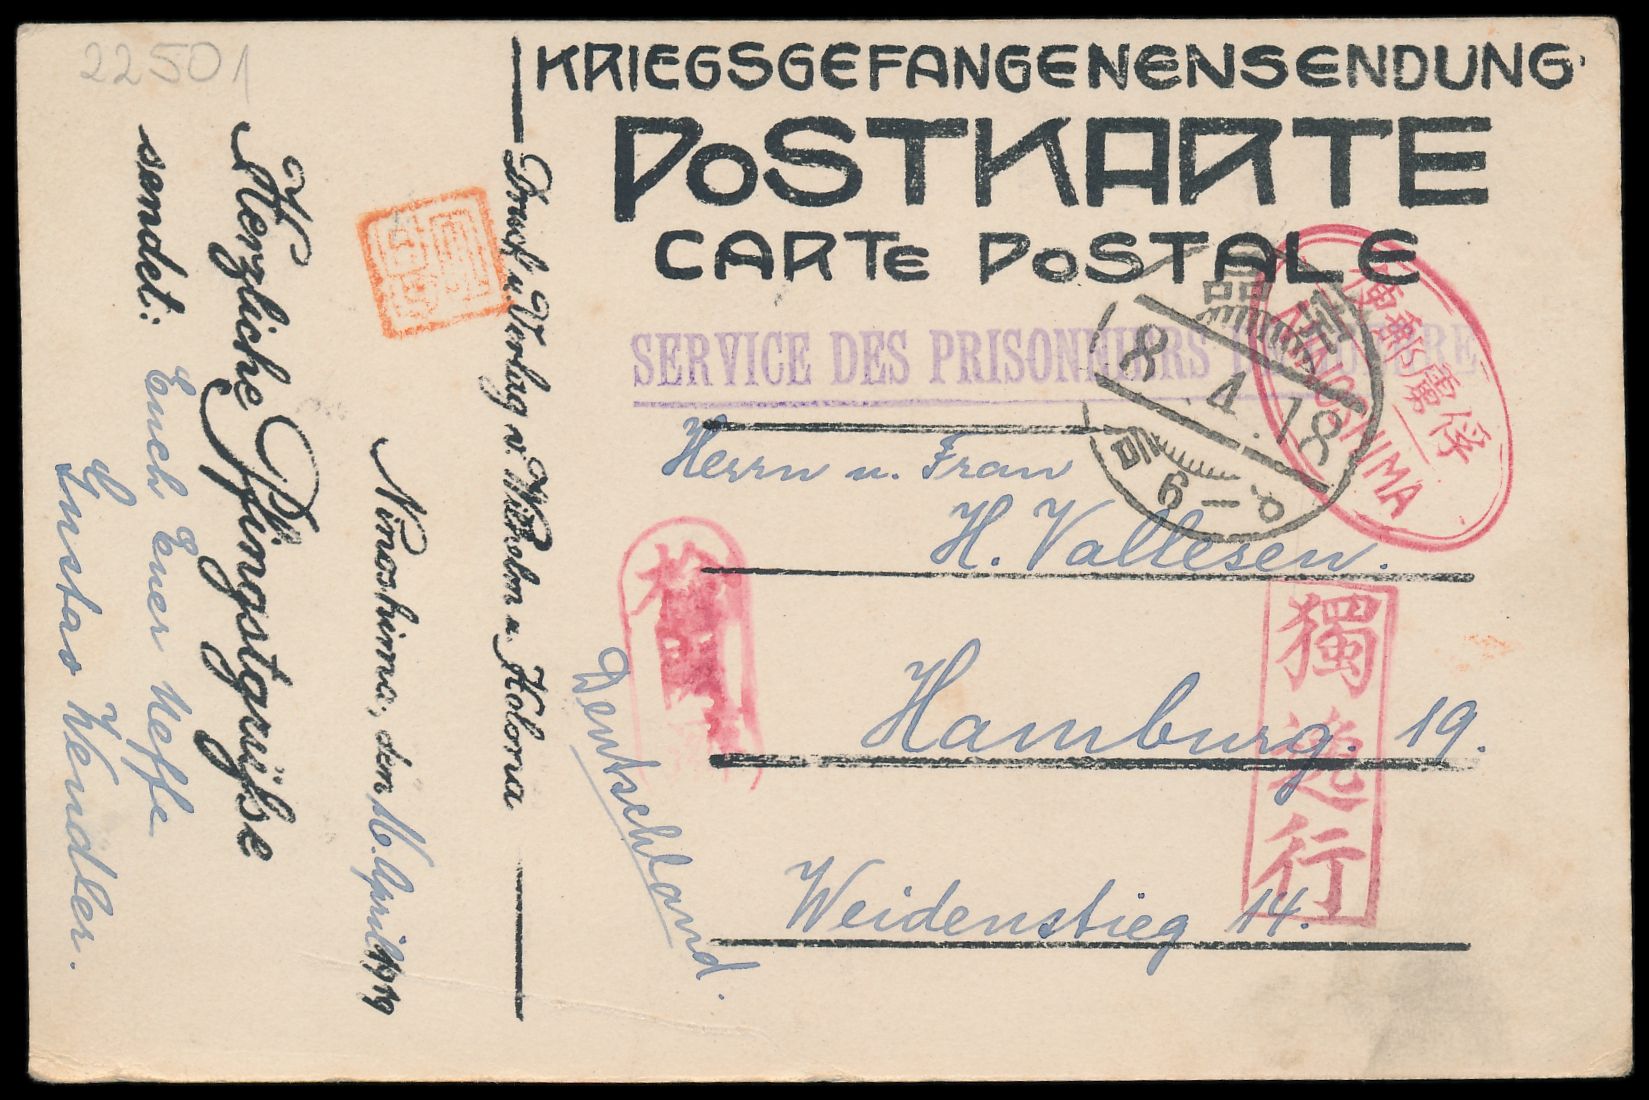 22501
KRIEGSGEFANGENENSENDUNG
POSTKARTE
CARTE POSTALE
SERVICE DES PRISONNIERS
NINOSHIMA
8.4.18
6-8
Herrn u. Frau
H. Vallesen.
Hamburg. 19.
Weidenstieg 14.
Deutschland.
獨逸行
Druck u. Verlag v. Wilhelm u. Holona
Ninoshima, den 16. April 1919
Herzliche Pfingstgrüße
sendet: Euch Euer Neffe
Gustav Wendler.